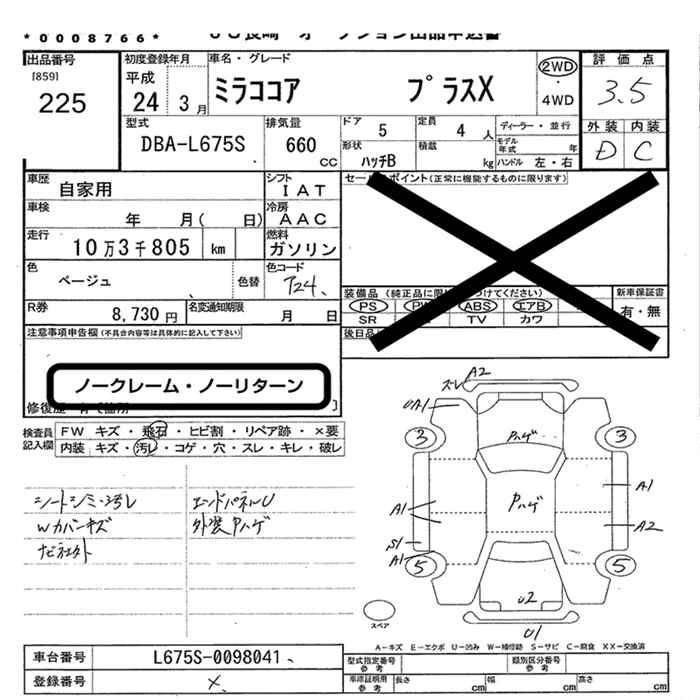 *0008766* ＪＵ長崎 オークション出品申込書
出品番号
[859]
225
初度登録年月
平成
24 3月
車名・グレード
ミラココア プラスX
2WD
・
4WD
評価点
3.5
外装 内装
D C
型式
DBA-L675S
排気量
660
CC
ドア 5
定員 4 人
ディーラー・並行
形状 ハッチB
積載 kg
モデル年式 年
ハンドル 左・右
車歴
自家用
シフト
IAT
セールスポイント(正常に機能するものに限ります)
車検
年 月( 日)
冷房
AAC
走行
10万3千805 km
燃料
ガソリン
色
ベージュ
色替
色コード
T24
装備品(純正品に限り 付けてください)
PS PW ABS エアB
SR TV カワ
新車保証書
有・無
R券
8,730円
名変通知期限
月 日
後日品
注意事項申告欄(不具合内容等は具体的に記入して下さい)
ノークレーム・ノーリターン
修復歴 有
検査員記入欄
FW キズ・飛石・ヒビ割・リペア跡・×要
内装・キズ・汚レ・コゲ・穴・スレ・キレ・破レ
シートシミ・汚レ エンドパネルU
Wカバーキズ 外装Pハゲ
ナビ社外
スレ A2
UA1
3 3
Pハゲ
Pハゲ
A1
A1
A2
S1
A1
5 5
U2
U1
スペア
A-キズ E-エクボ U-凹み W-補修跡 S-サビ C-腐食 XX-交換済
車台番号
L675S-0098041
登録番号
×
型式指定番号
参考
類別区分番号
参考
車庫証明用
参考
長さ cm 幅 cm 高さ cm